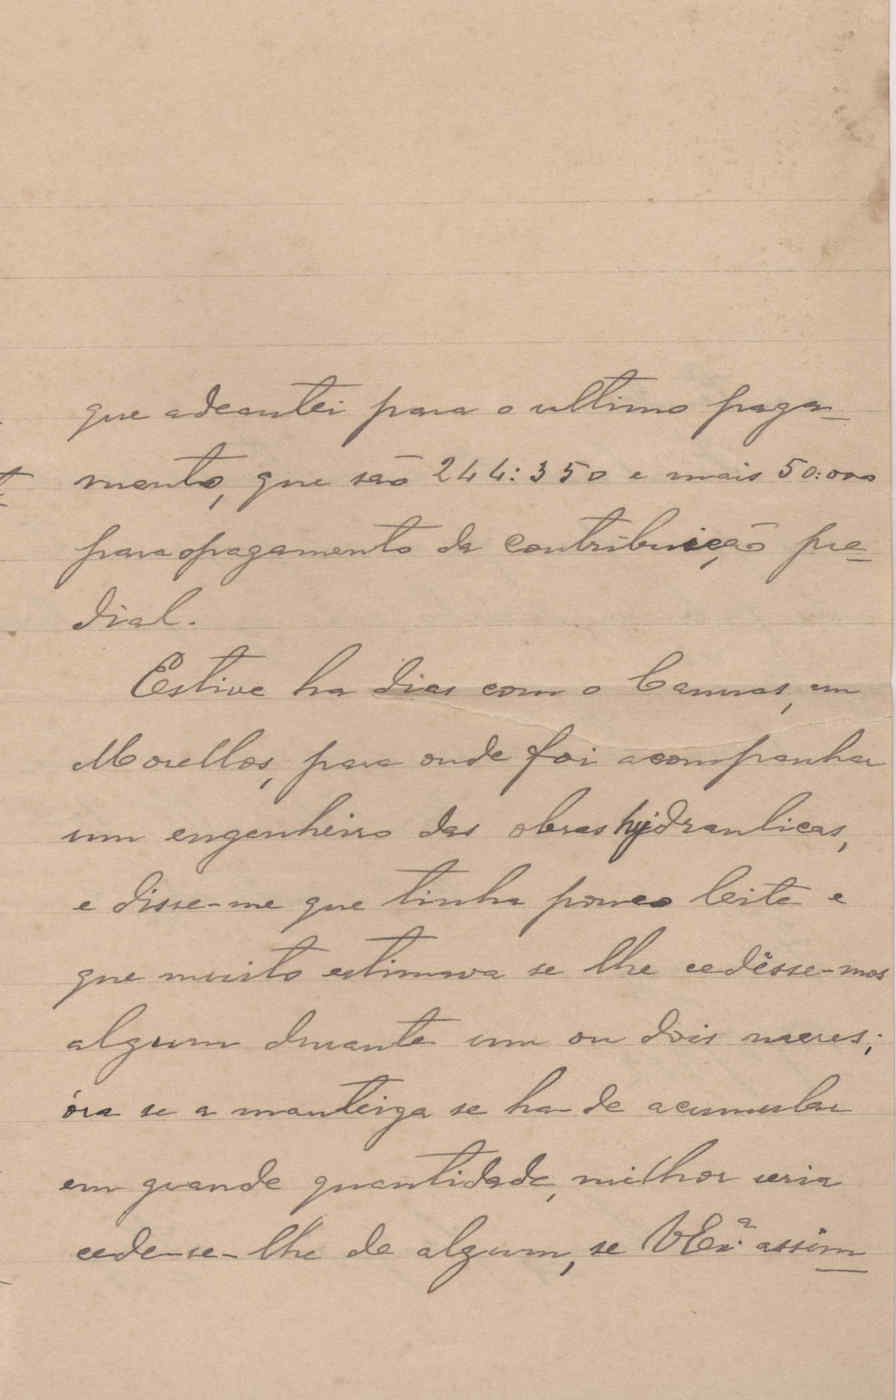 que adeantei para o ultimo paga-
mento, que são 244:350 e mais 50:000
para o pagamento da contribuição pre-
dial.
Estive ha dias com o Camas, em
Morellos, para onde foi acompanhar
um engenheiro das obras hydraulicas,
e disse-me que tinha pouco leite e
que muito estimava se lhe cedêsse-mos
algum durante um ou dois meses;
óra se a manteiga se ha-de acumular
em grande quantidade, milhor seria
cede-se-lhe de algum, se VEx.ª assim